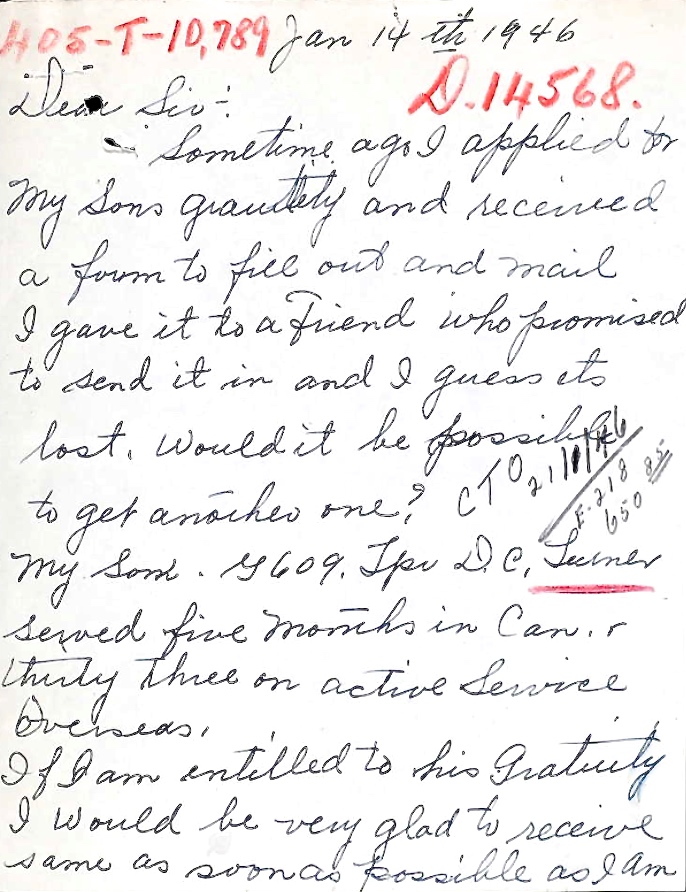 405-T-10,789 Jan 14th 1946
D.14568.
Dear Sir-:
Sometime ago I applied for
My Sons grauitity and received
a form to fill out and mail
I gave it to a Friend who promised
to send it in and I guess its
lost. Would it be possible
to get another one?
CTO 21/1/46
E. 218 85
650
My Son. G609. Tpr D.C. Turner
served five Months in Can. &
thirty three on active Service
Overseas.
If I am entilled to his Gratuity
I would be very glad to receive
same as soon as possible as I am